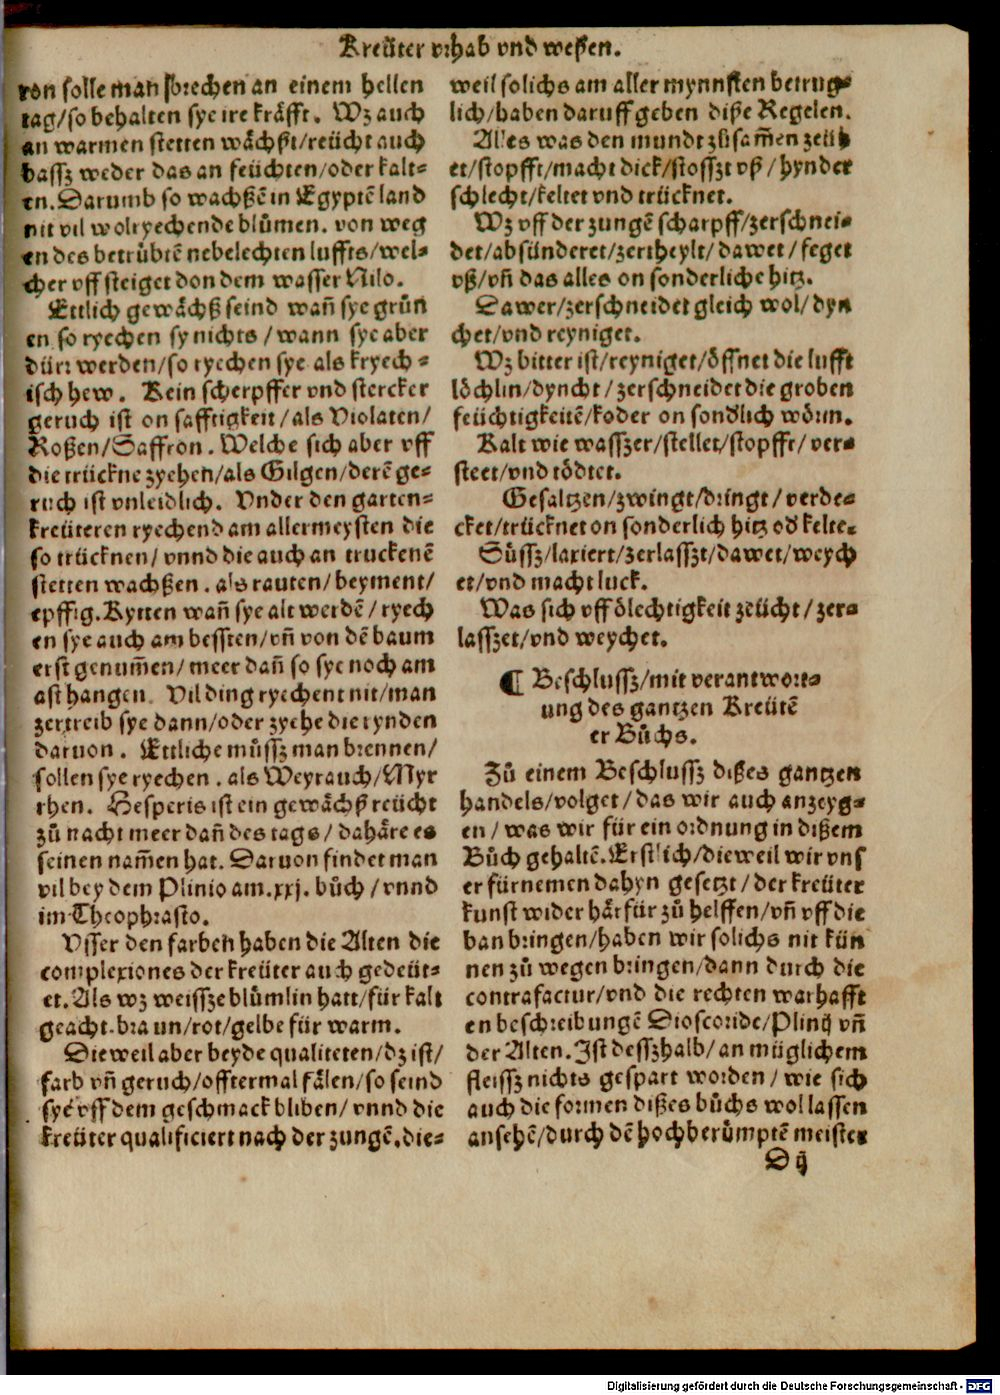 Kreüter vrhab vnd weſſen.
ren ſolle man ſbrechen an einem hellen
tag/ſo behalten ſye ire kräfft. Wz auch
an warmen ſtetten wächßt/reücht auch
baſſz weder das an feüchten/oder kalt⸗
en. Darumb ſo wachßē in Egyptē land
nit vil wolryechende blůmen. von weg
en des betrübtē nebelechten luffts/wel⸗
cher vff ſteiget don dem waſſer Nilo.
Ettlich gewächß ſeind wañ ſye grün
en ſo ryechen ſy nichts/wann ſye aber
dürr werden/ſo ryechen ſye als kryech⸗
iſch hew. Kein ſcherpffer vnd ſtercker
geruch iſt on ſafftigkeit/als Violaten/
Roßen/Saffron. Welche ſich aber vff
die trückne zyehen/als Gilgen/derē ge⸗
ruch iſt vnleidlich. Vnder den garten⸗
kreüteren ryechend am allermeyſten die
ſo trücknen/vnnd die auch an truckenē
ſtetten wachßen. als rauten/beyment/
epffig. Kytten wañ ſye alt werdē/ryech
en ſye auch am beſſten/vñ von dē baum
erſt genum̄en/meer dañ ſo ſye noch am
aſt hangen. Vil ding ryechent nit/man
zertreib ſye dann/oder zyehe die rynden
daruon. Ettliche můſſz man brennen/
ſollen ſye ryechen. als Weyrauch/Myr
rhen. Heſperis iſt ein gewächß reücht
zů nacht meer dañ des tags/dahäre es
ſeinen nam̄en hat. Daruon findet man
vil bey dem Plinio am .xxj. bůch/vnnd
im Theophraſto.
Vſſer den farben haben die Alten die
complexiones der kreüter auch gedeüt⸗
et. Als wz weiſſze blůmlin hatt/für kalt
geacht. braun/rot/gelbe für warm.
Dieweil aber beyde qualiteten/dz iſt/
farb vñ geruch/offtermal fälen/ſo ſeind
ſye vff dem geſchmack bliben/vnnd die
kreüter qualificiert nach der zungē. die⸗
weil ſolichs am aller mynnſten betrug⸗
lich/haben daruff geben diße Regelen.
Alles was den mundt zůſam̄en zeüh
et/ſtopfft/macht dick/ſtoſſzt vß/hynder
ſchlecht/keltet vnd trücknet.
Wz vff der zungē ſcharpff/zerſchnei⸗
det/abſünderet/zertheylt/dawet/feget
vß/vñ das alles on ſonderliche hitz.
Sawer/zerſchneidet gleich wol/dyn
chet/vnd reyniget.
Wz bitter iſt/reyniget/öffnet die lufft
löchlin/dyncht/zerſchneidet die groben
feüchtigkeitē/koder on ſondlich wörm.
Kalt wie waſſzer/ſtellet/ſtopfft/ver⸗
ſteet/vnd tödtet.
Geſaltzen/zwingt/dringt/verde⸗
cket/trücknet on ſonderlich hitz od kelte.
Süſſz/laxiert/zerlaſſzt/dawet/weych
et/vnd macht luck.
Was ſich vff ölechtigkeit zeücht/zer⸗
laſſzet/vnd weychet.
¶ Beſchluſſz/mit verantwort⸗
ung des gantzen Kreütē
er Bůchs.
Zů einem Beſchluſſz dißes gantzen
handels/volget/das wir auch anzeyg⸗
en/was wir für ein ordnung in dißem
Bůch gehaltē. Erſtlich/dieweil wir vnſ
er fürnemen dahyn geſetzt/der kreüter
kunſt wider härfür zů helffen/vñ vff die
ban bringen/haben wir ſolichs nit kün
nen zů wegen bringen/dann durch die
contrafactur/vnd die rechten warhafft
en beſchreibungē Dioſcoride/Plinij vñ
der Alten. Iſt deſſzhalb/an müglichem
fleiſſz nichts geſpart worden/wie ſich
auch die formen dißes bůchs wol laſſen
anſehē/durch dē hochberümptē meiſter
D ij
Digitalisierung gefördert durch die Deutsche Forschungsgemeinschaft - DFG